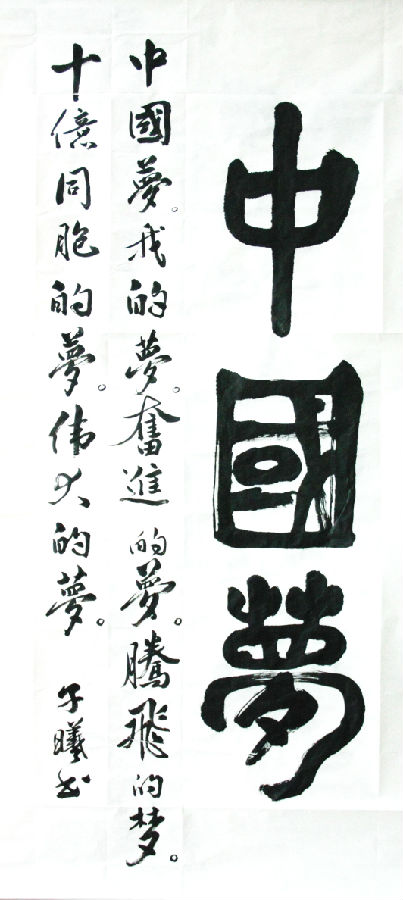 中國夢
中國夢。我的夢。奮進的夢。騰飛的梦。
十億同胞的夢。伟大的夢。
子曦书